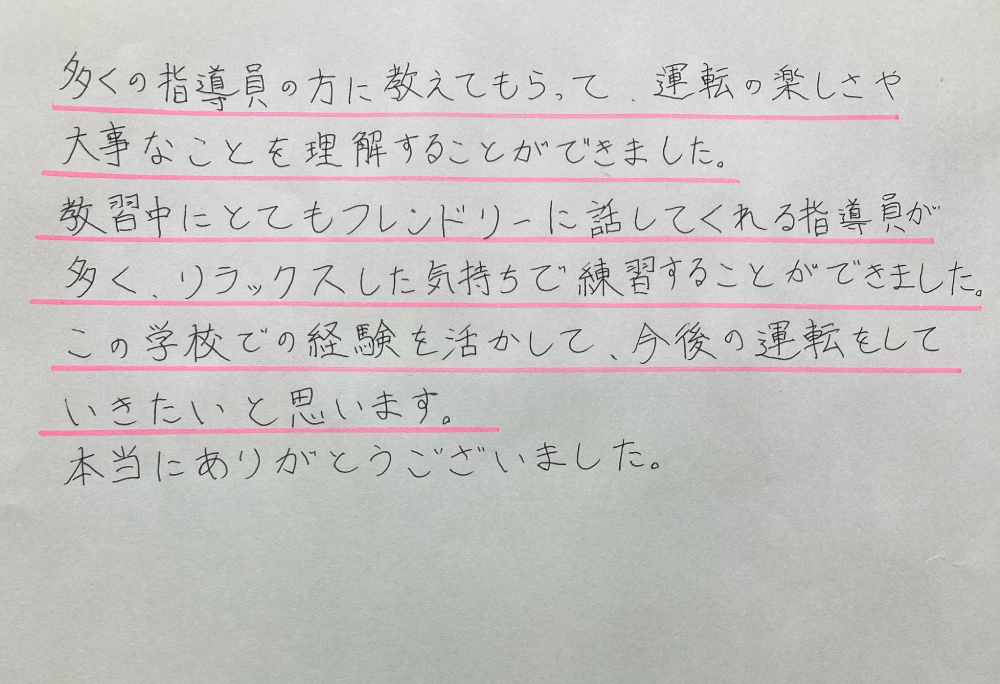 多くの指導員の方に教えてもらって、運転の楽しさや
大事なことを理解することができました。
教習中にとてもフレンドリーに話してくれる指導員が
多く、リラックスした気持ちで練習することができました。
この学校での経験を活かして、今後の運転をして
いきたいと思います。
本当にありがとうございました。